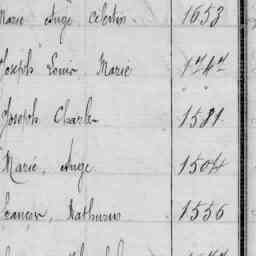 Marie Ange Célestin 1653
Joseph Louis Marie 1747
Joseph Charles 1581
Marie, Ange 1504
François, Mathurin 1556